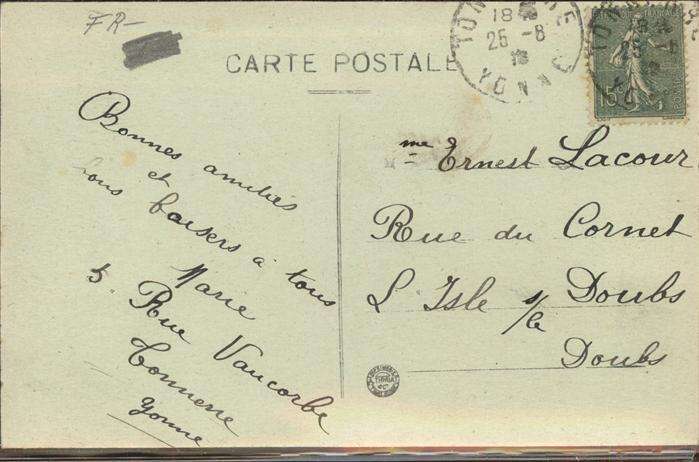 FR-
CARTE POSTALE
18
25 -8
YONNE
15
Bonnes amitiés
et
bons baisers à tous
Marie
5. Rue Vaucorbe
Tonnerre
Yonne
me Ernest Lacour
Rue du Cornet
L'Isle s/le Doubs
Doubs